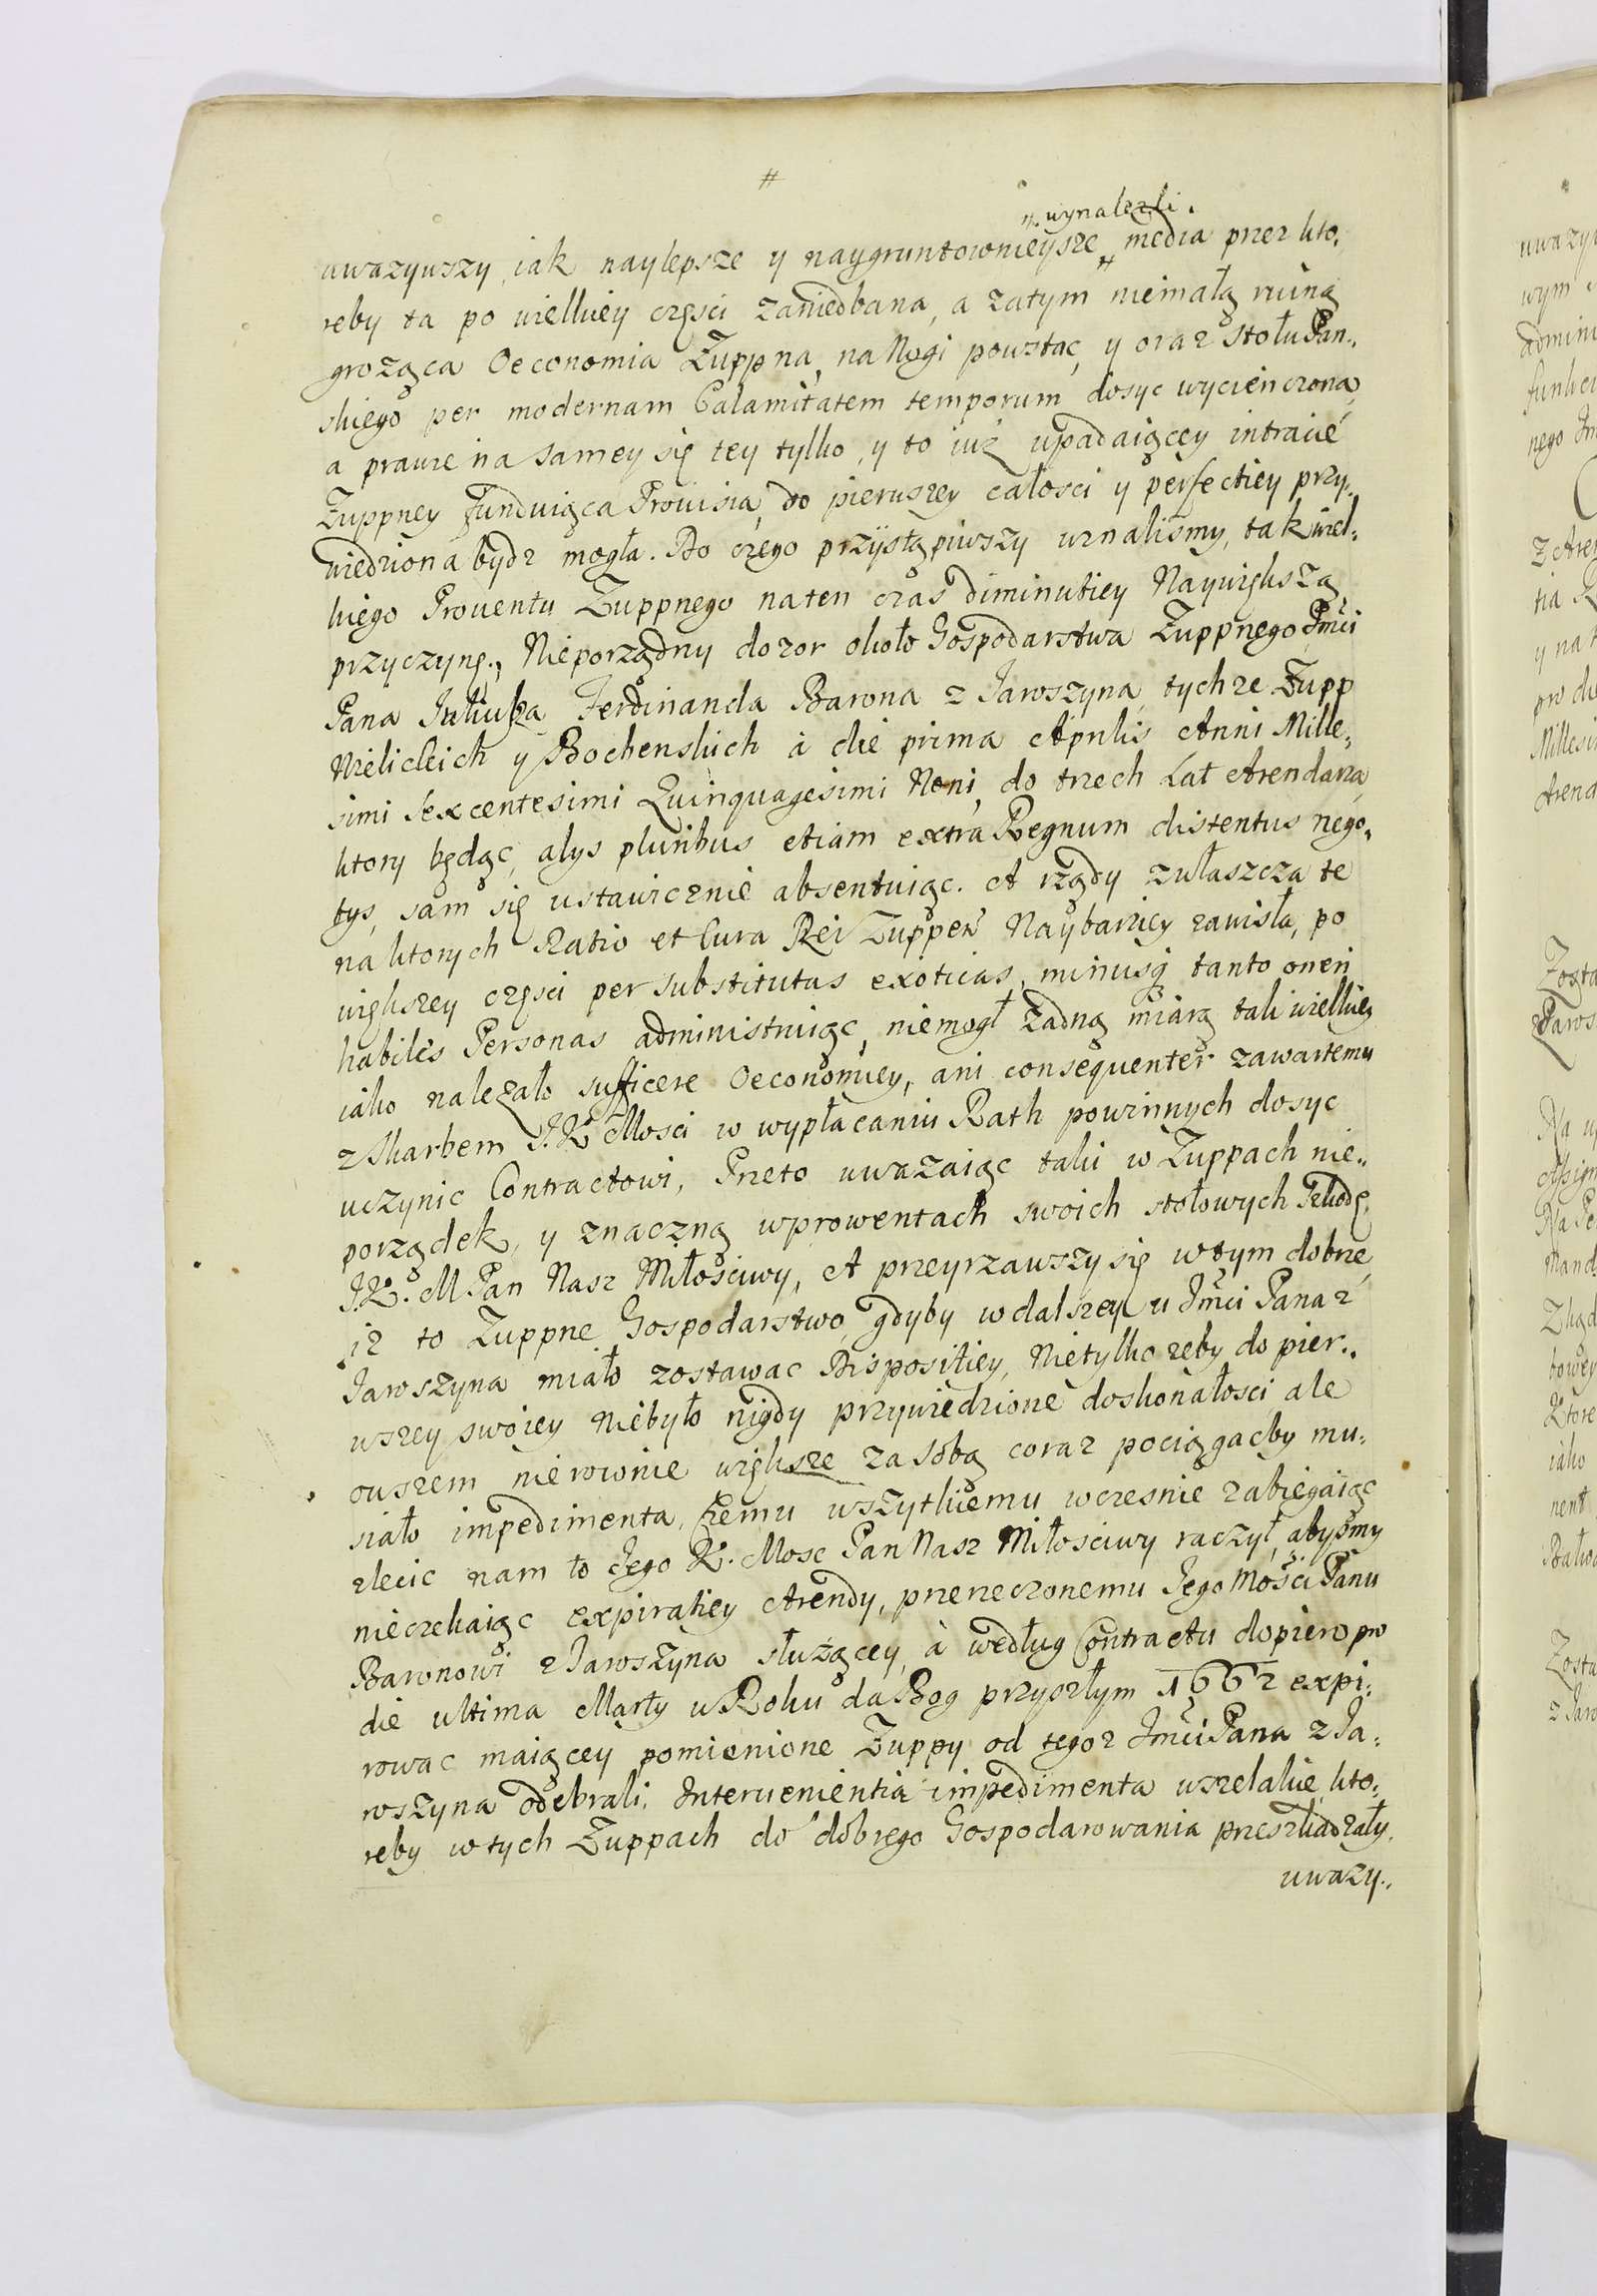 #
# wynalezli.
uwazywszy, iak naylepsze y naygruntownieysze # media przez kto,
reby ta po wielkiey części zaniedbana, a zatym niemałą ruiną
grożąca Oeconomia Żuppna, na Nogi powstac, y oraz stołu Pan„
skiego per modernam Calamitatem temporum dosyc wycienczona,
a prawie na samey się tey tylko, y to iuż upadaiącey intracie
Żuppney funduiąca Prouisia, do pierwszey całosci y perfectiey przy„
wiedziona bydz mogła. Do czego przystąpiwszy uznalismy, tak wiel„
kiego Prouentu Żuppnego na ten czas diminutiey Naywiększą
przyczynę., Nieporządny dozor około Gospodarstwa Żuppnego Jmći
Pana Juliusza Ferdinanda Barona z Jaroszyna, tychze Żupp
Wielickich y Bochenskich à die prima Aprilis Anni Mille„
simi Sexcentesimi Quinquagesimi Noni, do trzech Lat Arendarza
ktory będąc, alys pluribus etiam extra Regnum distentus nego„
tys, sam się ustawicznie absentuiąc. A rządy zwłaszcza te
na ktorych Ratio et Cura Rei Żuppen Naybarziey zawisła, po
większey części per substitutas exoticas, minusq tanto oneri
habiles Personas administruiąc, niemogł żadną miarą tak wielkiey
iako nalezało sufficere Oeconomiey, ani consequenter zawartemu
z Skarbem J. K Mosci w wypłacaniu Rath powinnych dosyc
uczynic Contractowi, Przeto uwazaiąc taki w Żuppach nie„
porządek, y znaczną wprowentach swoich stołowych Szkodę,
J. K. M Pan Nasz Miłosciwy, A przeyrzawszy się wtym dobrze,
iz to Żuppne Gospodarstwo, gdyby w dalszey u Jmći Pana z
Jaroszyna miało zostawac Dispositiey, Nietylko zeby do pier„
wszey swoiey niebyło nigdy przywiedzione doskonałosci, ale
owszem nierownie większe za sobą coraz pociągacby mu„
siało impedimenta, Czemu wszytkiemu wczesnie zabiegaiąc
zlecic nam to Jego K. Mosc Pan Nasz Miłosciwy raczył, abysmy
nieczekaiąc expiratiey Arendy, przerzeczonemu Jego Mości Panu
Baronowi z Jaroszyna służącey, à według Contractu dopiero pro
die ultima Marty w Roku da Bog przyszłym 1662 expi„
rowac maiącey pomienione Żuppy od tegoz Jmći Pana z Ja„
roszyna odebrali, Interuenientia impedimenta wszelakie, kto„
reby w tych Żuppach do dobrego Gospodarowania przeszkadzały,
uwazy„